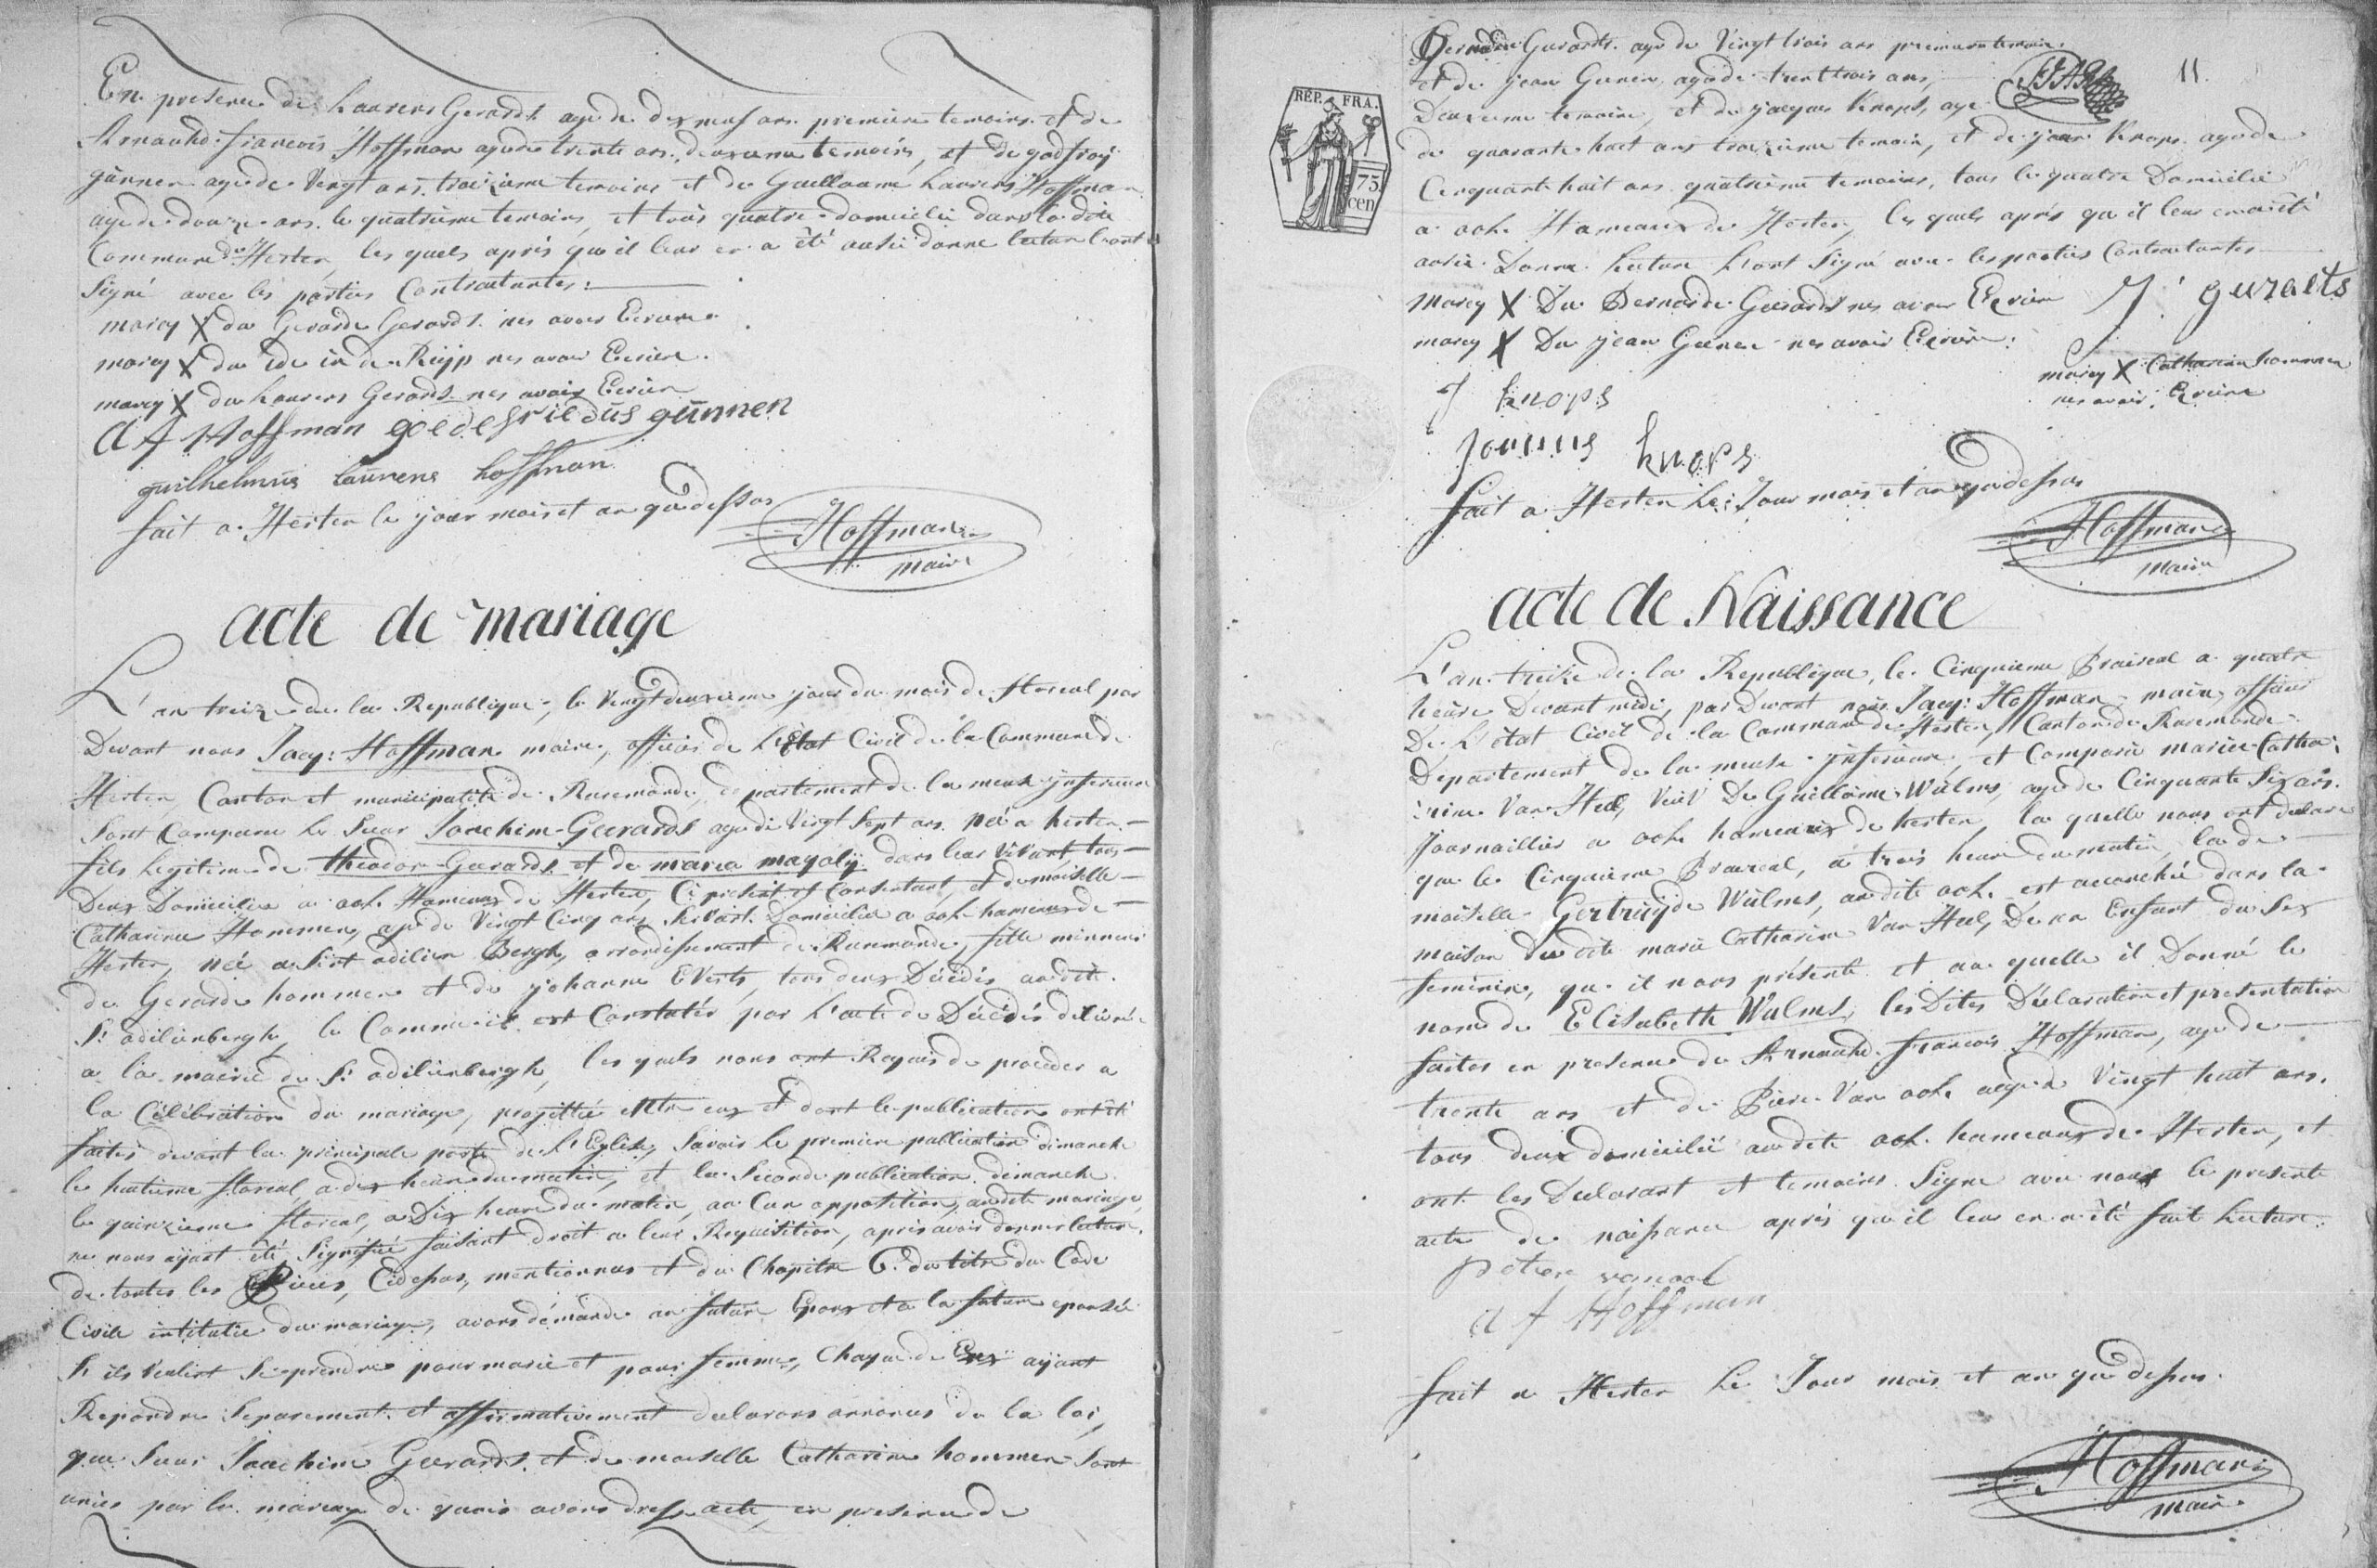 En presence de Laurens Gerards agé de dix neuf ans premiere temoins et de
Arnauld francois Hoffman agé de trente ans, deuxieme temoins, et de godfroy
günnen agé de vingt ans troizieme temoins et de Guillaume Laurens Hoffman
agé de douze ans le quatrieme temoins, et tous quatre domicilié dans la dite
Commune de Herten, les quels aprés qu'il leur en a été ausie donne lecture l'ont
Signé avec les parties Contractantes:
marcq X du Gerarde Gerards nes avoir Ecrire
marcq X du Ide in de Ruijp nes avoir Ecrire.
marcq X du Laurens Gerards nes avoir Ecrire
A f Hoffman goedefriedüs günnen
guilhelmüs laurens hoffman
fait a Herten le jour mois et an que dessus
Hoffman
maire
acte de mariage
L'an treize de la Republique, le vingt deuxieme jour du mois de floreal par
Devant nous Jacq: Hoffman maire, officier de L'Etat Civil de la Commune de
Herten, Canton et municipalité de Ruremonde, departement de la meuse jnferieure
Sont Comparue le Sieur Joachim Geerards agé de vingt Sept ans né a herten
fils legitime de theodor Gerards et de maria magolij dans leur vivant, tous
Deux Domicilié a ool Hameaux de Herten, Ci présent et Consentant, et demoiselle
Catharina Hommen, agé de Vingt Cinq ans Servant Domicilié a ool hameaux de
Herten, née a Sint odilien Bergh, arrondissement de Ruremonde, fille mineure
de Gerarde hommen et de johanna Everts, tous deux Décédés audite
St odilienbergh, le Comme il est Constatér par L'acte de Décédés delivré
a la mairie de St odilienbergh, les quels nous ont Requis de procéder a
la Célébration du mariage, projettée entre eux et dont les publications ont été
faites devant la principale porte de L'Eglise, Savoir le premiere publication dimanche
le huitieme floreal, a dix heure du matin, et la Seconde publication dimanche
le quinzieme floreal, a Dix heure du matin, au Cun opposition, audite mariage,
ne nous ayant été Signifié faisant droit a leur Requisition, aprés avoir donner lecture
de toutes les Pièces, Cidessus, mentionnés et du Chapitre 6. du titre du Code
Civile intitulée du mariage, avons démandé au futur Epoux et a la future epousée
S'ils veulent Se prendre pour marie et pour femme, Chaque de Eux aÿant
Repondre Separement et affirmativement declarons au nom de la loi,
que Sieur Joachim Geerards et de moiselle Catharina hommen Sont
unies par le mariage de quoi avons dresse acte, en presence de
Bernarde Gerards agé de Vingt trois ans premiere temoins
11
et de jean Geenen agé de trent trois ans,
Deuxieme temoins, et de jacques Knops, age
de quarante huit ans troizieme temoin, et de jean Knops agé de
Cinquante huit ans quatrieme temoins, tous les quatre Domicilié
a ool Hameaux de Herten, les quels aprés qu'il leur en a été
ausie Donne Lecture L'ont Signé avec les parties Contractantes
REP. FRA.
75
cen
marcq X Du Bernarde Gerards nes avoir Ecrire
J: geerards
marcq X Du jean Geenen nes avoir Ecrire:
marcq X Catharina hommen
nes avoir Ecrire
J knops
Joannes knops
fait a Herten Le Jour mois et an que dessus
Hoffman
maire
acte de Naissance
L'an treize de la Republique, le Cinquieme Praireal a quatre
heure Devant midi, par Devant nous Jacq: Hoffman maire, officier
De L'état Civil de la Commune de Herten, Canton de Ruremonde
Departement de la meuse jnferieure, et Comparue marie Catha:
:rine Van Heel, Veuv De Guillaume Wülms, agé de Cinquante Six ans.
Journaillier a ool hameaux de herten, la quelle nous ont declare
que le Cinquieme Praireal, a trois heure du matin, la de
moiselle Gertruijde Wülms, audite ool est accouchée dans la
maison du dite marie Catharine Van Heel, De un Enfant du Sex
feminin, qu'il nous présenté et au quelle il Donné le
nom de Elisabeth Wulms, les Dites Déclaration et presentation
faites en presence de Arnauld francois Hoffman, agé de
trente ans et de Piere Van ool agé de Vingt huit ans.
tous deux domicilié audite ool hameaux de Herten, et
ont les Declarant et temoins Signe avec nous le presente
acte de naissance aprés qu'il leur en a été fait Lecture.
peter vanool
a f Hoffman
fait a Herten Le Jour mois et an que dessus.
Hoffman
maire.